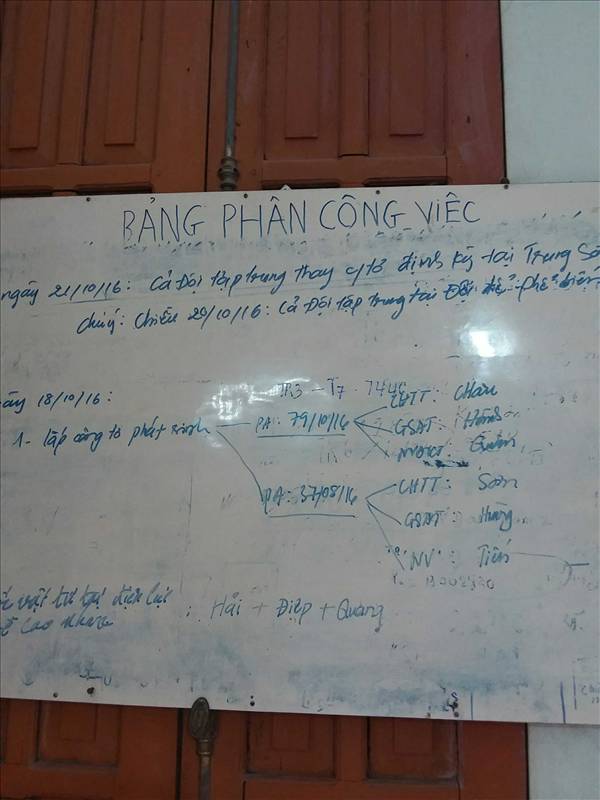 BẢNG PHÂN CÔNG VIỆC
ngày 21/10/16: Cả Đội tập trung thay c/tơ định kỳ tại Trung
chú ý: Chiều 20/10/16: Cả Đội tập trung tại Đội để phổ biến
18/10/16:
1- lắp công tơ phát sinh
PA: 79/10/16
CHTT: Châu
GSAT:
PA: 37/08/16
CHTT: Sơn
GSAT: Hùng
NV: Tiến
vật tư tại điện lực
: Hải + Điệp + Quang